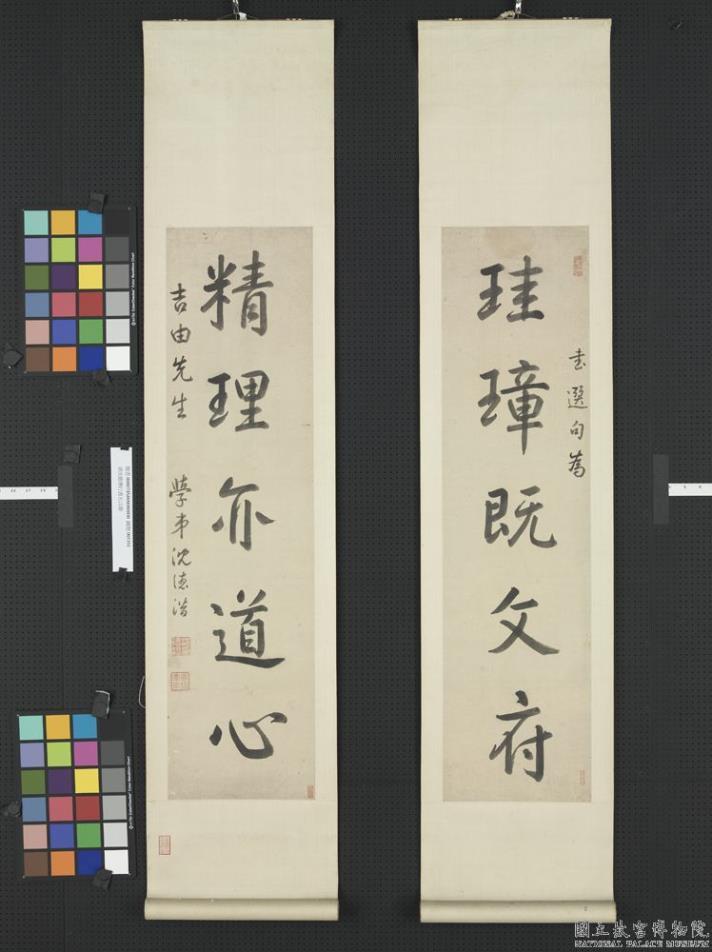 書選句為
珪璋既文府
精理亦道心
吉由先生
學弟沈德潛
國立故宮博物院
NATIONAL PALACE MUSEUM